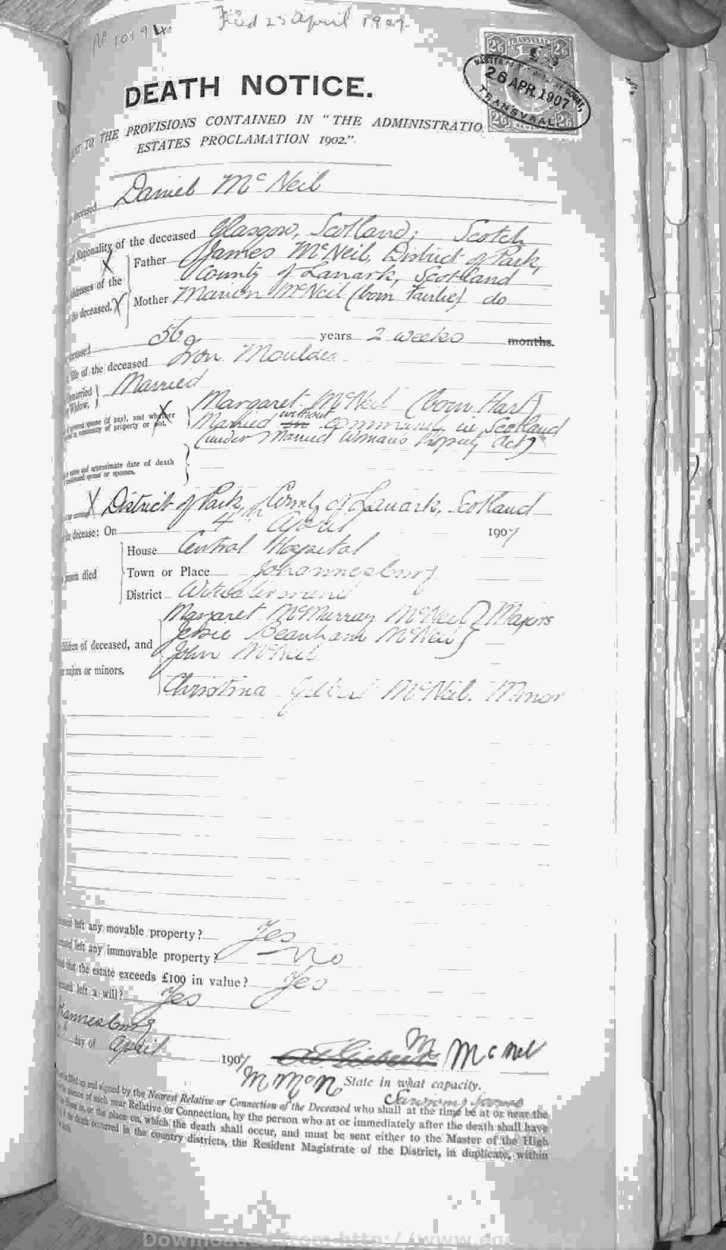 Filed 25 April 1907
TRANSVAAL
26 26
MASTER OF THE
26 APR 1907
TRANSVAAL
DEATH NOTICE.
TO THE PROVISIONS CONTAINED IN "THE ADMINISTRATIO
ESTATES PROCLAMATION 1902."
deceased Daniel McNeil
Nationality of the deceased Glasgow, Scotland; Scotch
of the Father James McNeil, District of Park,
County of Lanark, Scotland
deceased. Mother Marion McNeil (born Fairlie) do
56 years 2 weeks months.
of the deceased Iron Moulder
Married
Margaret McNeil (born Hart)
Married without in community in Scotland
(under Married Womans Property Act)
and approximate date of death
District of Park, County of Lanark, Scotland
decease; On 4th April 1907
House Central Hospital
died Town or Place Johannesburg
District Witwatersrand
Margaret McMurray McNeil } Majors
Jessie Beauhann McNeil
of deceased, and John McNeil
majors or minors.
Christina McNeil. Minor
left any movable property? Yes
left any immovable property? No
the estate exceeds £100 in value? Yes
left a will? Yes
day of April 1907 M McNeil
State in what capacity.
Surviving Spouse
filled up and signed by the Nearest Relative or Connection of the Deceased who shall at the time be at or near the
of such near Relative or Connection, by the person who at or immediately after the death shall have
the place on, which the death shall occur, and must be sent either to the Master of the High
occurred in the country districts, the Resident Magistrate of the District, in duplicate, within